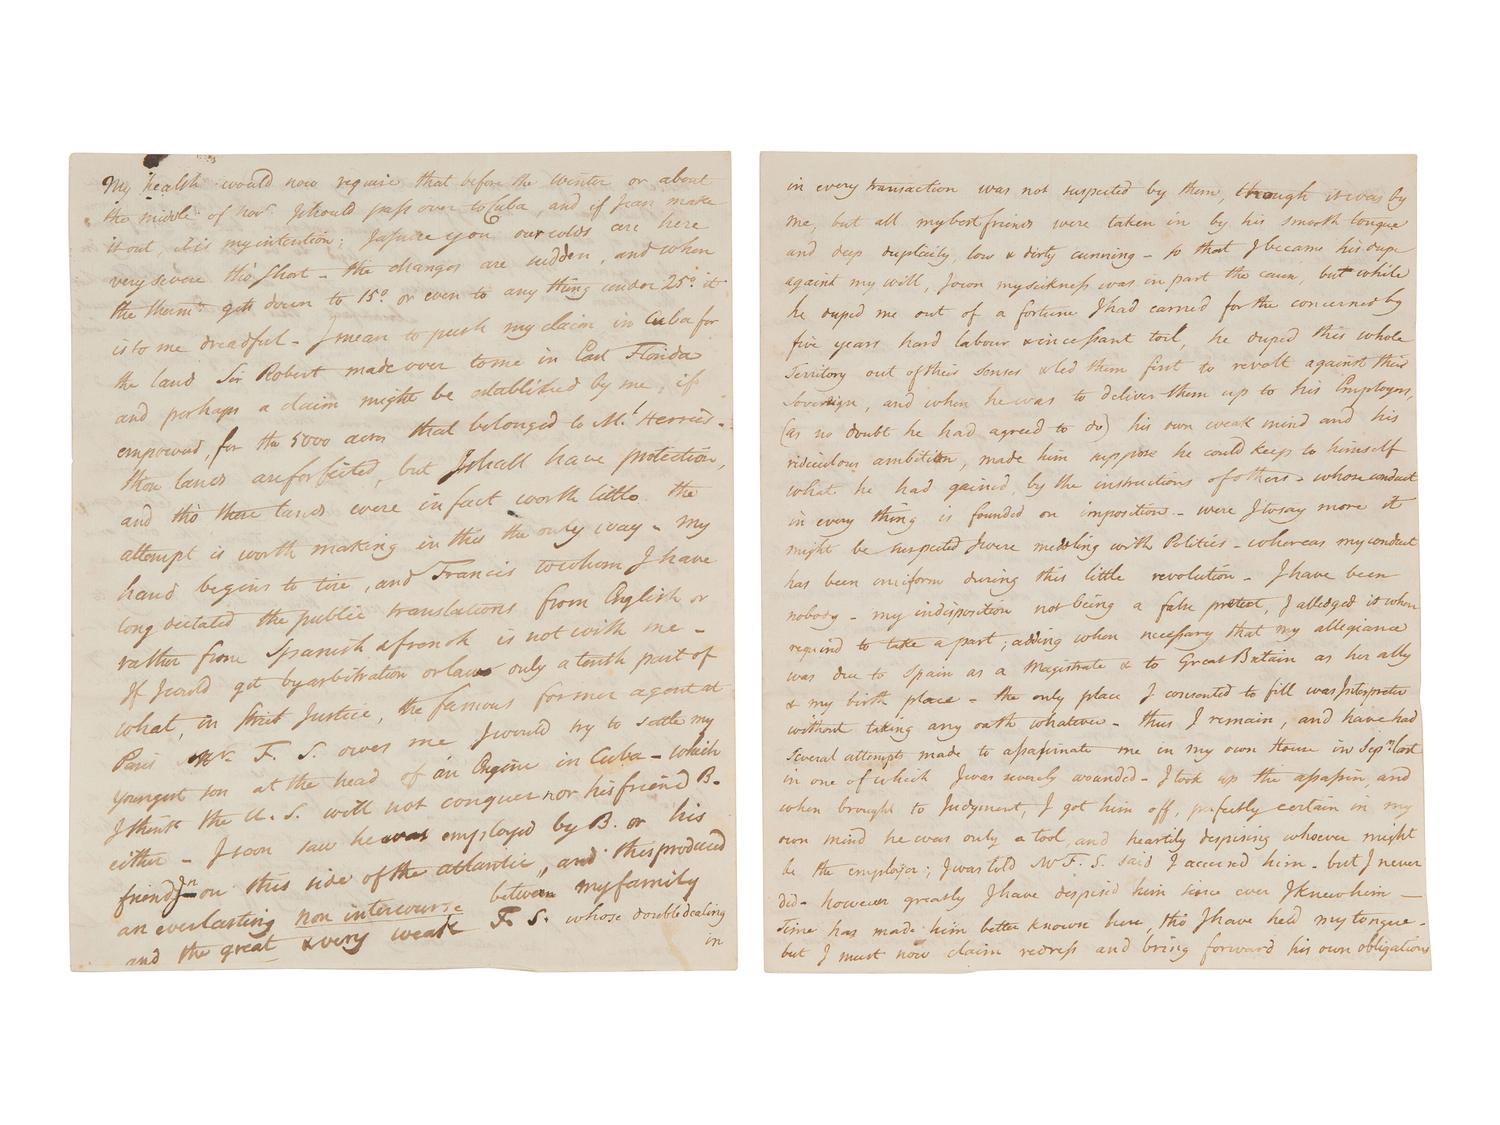 My health would now require that before the winter or about
the middle of Nov.r I should pass over to Cuba, and if I can make
it out, it is my intention; I assure you our colds are here
very severe tho' short - the changes are sudden, and when
the therm.r gets down to 15° or even to any thing under 25° it
is to me dreadful - I mean to push my claim in Cuba for
the land Sir Robert made over to me in East Florida
and perhaps a claim might be established by me, if
empowered, for the 5000 acres that belonged to Mr. Herries -
those lands are forfeited, but I shall have protection,
and tho' these lands were in fact worth little the
attempt is worth making in this the only way - My
hand begins to tire, and Francis to whom I have
long dictated the public translations from English or
rather from Spanish & french is not with me -
If I could get by arbitration or law only a tenth part of
what, in strict Justice, the famous former agent at
Paris Mr. F. S. owes me I would try to settle my
youngest son at the head of an Engine in Cuba - which
I think the U. S. will not conquer nor his friend B.
either - I soon saw he was employed by B. or his
friend Jn on this side of the atlantic, and this produced
an everlasting non intercourse between my family
and the great & very weak F. S. whose double dealing
in
in every transaction was not suspected by them, though it was by
me, but all my best friends were taken in by his smooth tongue
and deep duplicity, low & dirty cunning - so that I became his dupe
against my will, I own my sickness was in part the cause, but while
he duped me out of a fortune I had earned for the concerned by
five years hard labour & incessant toil, he duped this whole
Territory out of their senses & led them first to revolt against their
Sovereign, and when he was to deliver them up to his Employers,
(as no doubt he had agreed to do) his own weak mind and his
ridiculous ambition, made him suppose he could keep to himself
what he had gained, by the instructions of others - whose conduct
in every thing is founded on imposition - were I to say more it
might be suspected I were meddling with Politics - whereas my conduct
has been uniform during this little revolution - I have been
nobody - my indisposition not being a false pretext, I alledged it when
required to take a part; adding when necessary that my allegiance
was due to Spain as a Magistrate & to Great Britain as her ally
& my birth place - the only place I consented to fill was Interpreter
without taking any oath whatever - thus I remain, and have had
several attempts made to assassinate me in my own House in Sep.r last
in one of which I was severely wounded - I took up the assassin, and
when brought to Judgment, I got him off, perfectly certain in my
own mind he was only a tool, and heartily despising whoever might
be the employer; I was told Mr F. S. said I accused him - but I never
did - however greatly I have despised him since ever I knew him -
Time has made him better known here, tho' I have held my tongue -
but I must now claim redress and bring forward his own obligations